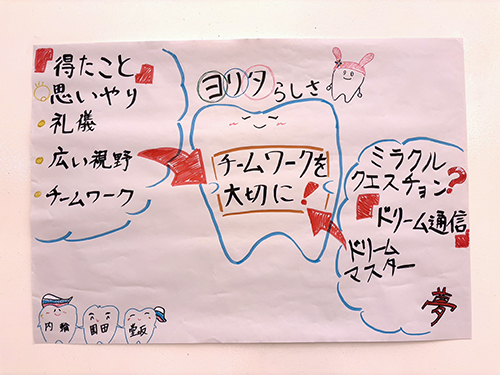 『得たこと』
思いやり
礼儀
広い視野
チームワーク
ヨリタらしさ
チームワークを
大切に!
ミラクル
クエスチョン?
『ドリーム通信』
ドリーム
マスター
夢
内輪
園田
堂坂